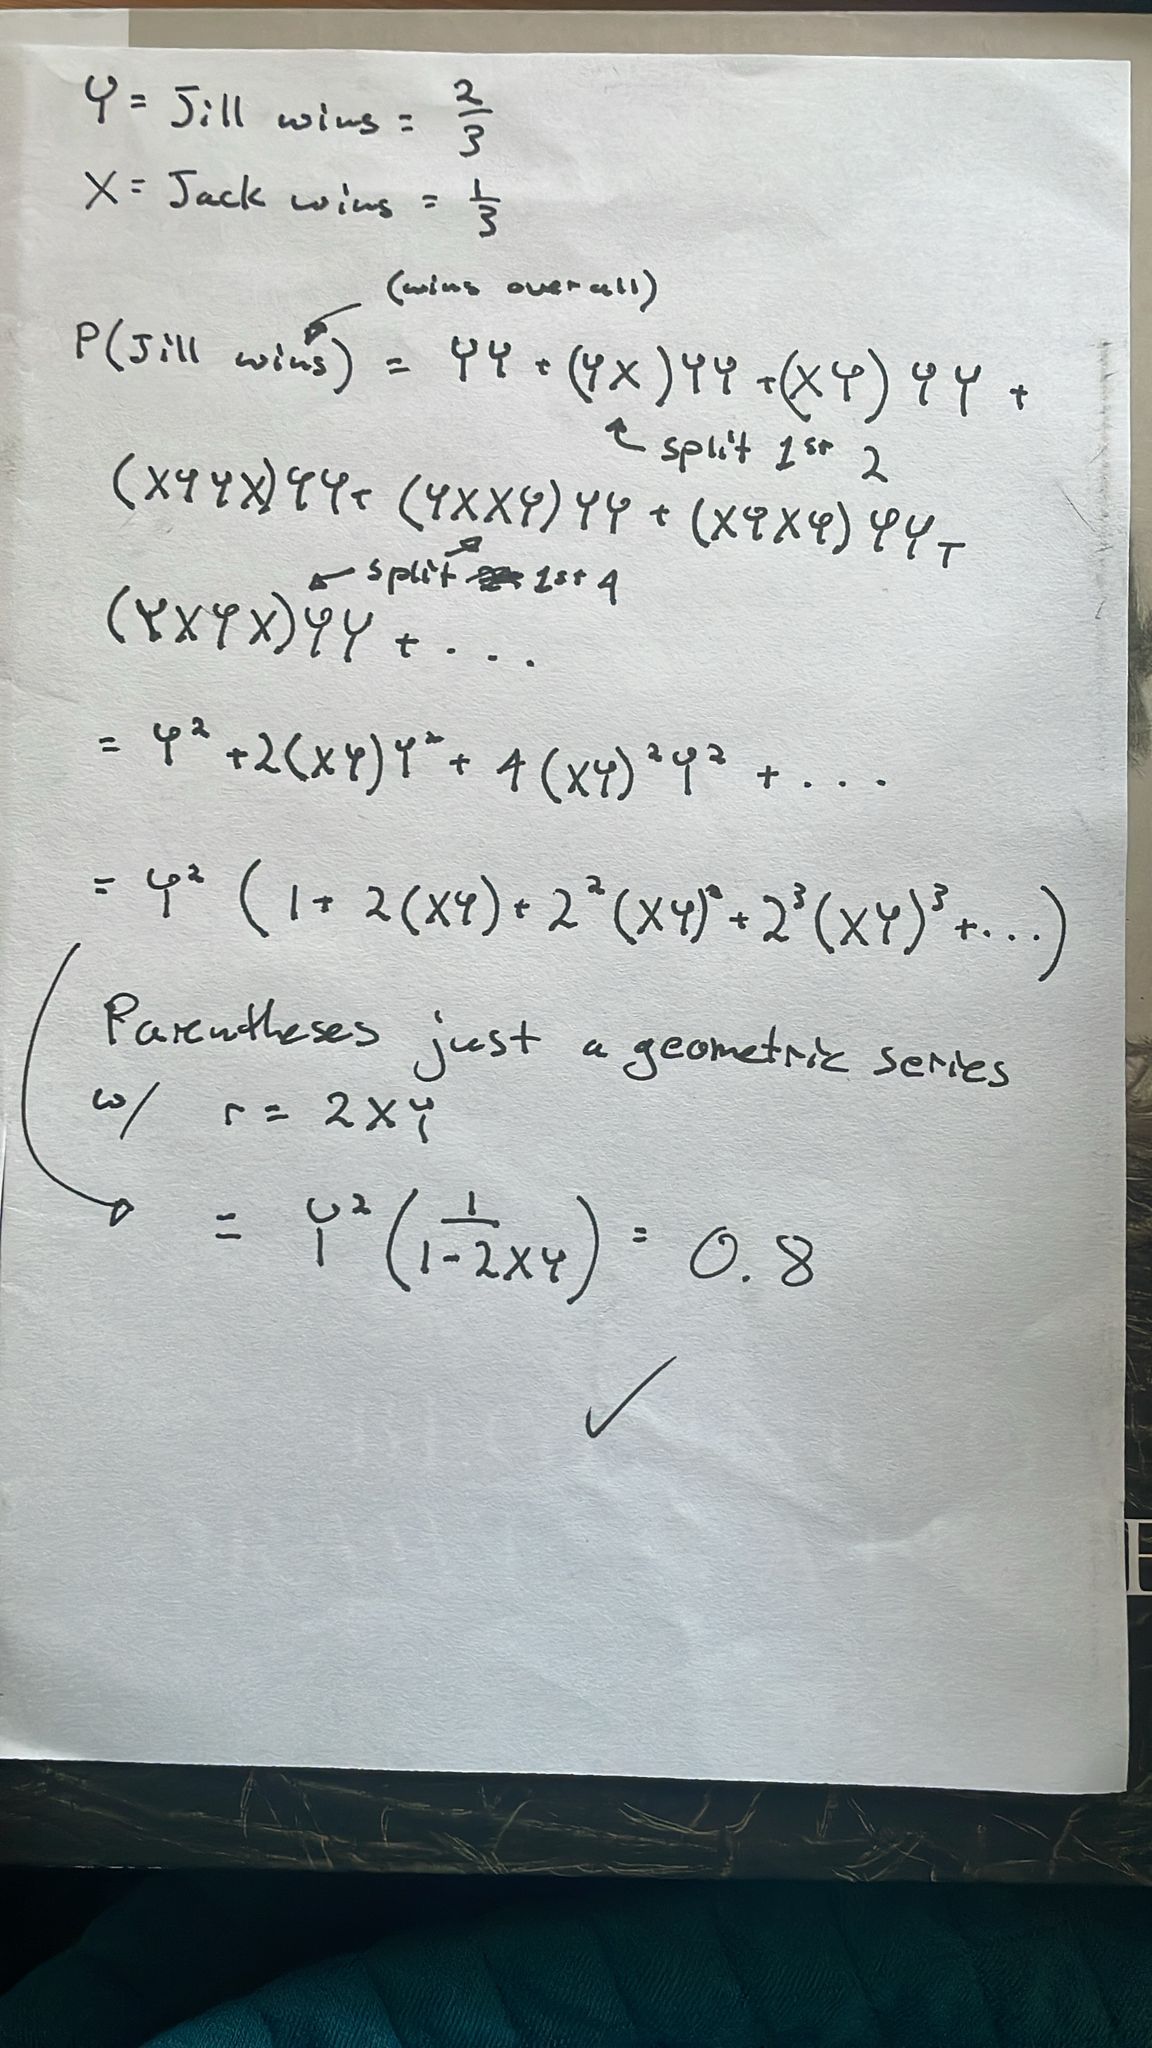 Y = Jill wins = 2/3
X = Jack wins = 1/3
(wins overall)
P(Jill wins) = YY + (YX)YY + (XY) YY +
split 1st 2
(XYYX)YY + (YXXY)YY + (XYXY)YY +
split 1st 4
(YXYX)YY + . . .
= Y² + 2(XY)Y² + 4(XY)²Y² + . . .
= Y² (1 + 2(XY) + 2²(XY)² + 2³(XY)³ + . . .)
Parentheses just a geometric series
w/ r = 2XY
= Y² (1/(1-2XY)) = 0.8
✓